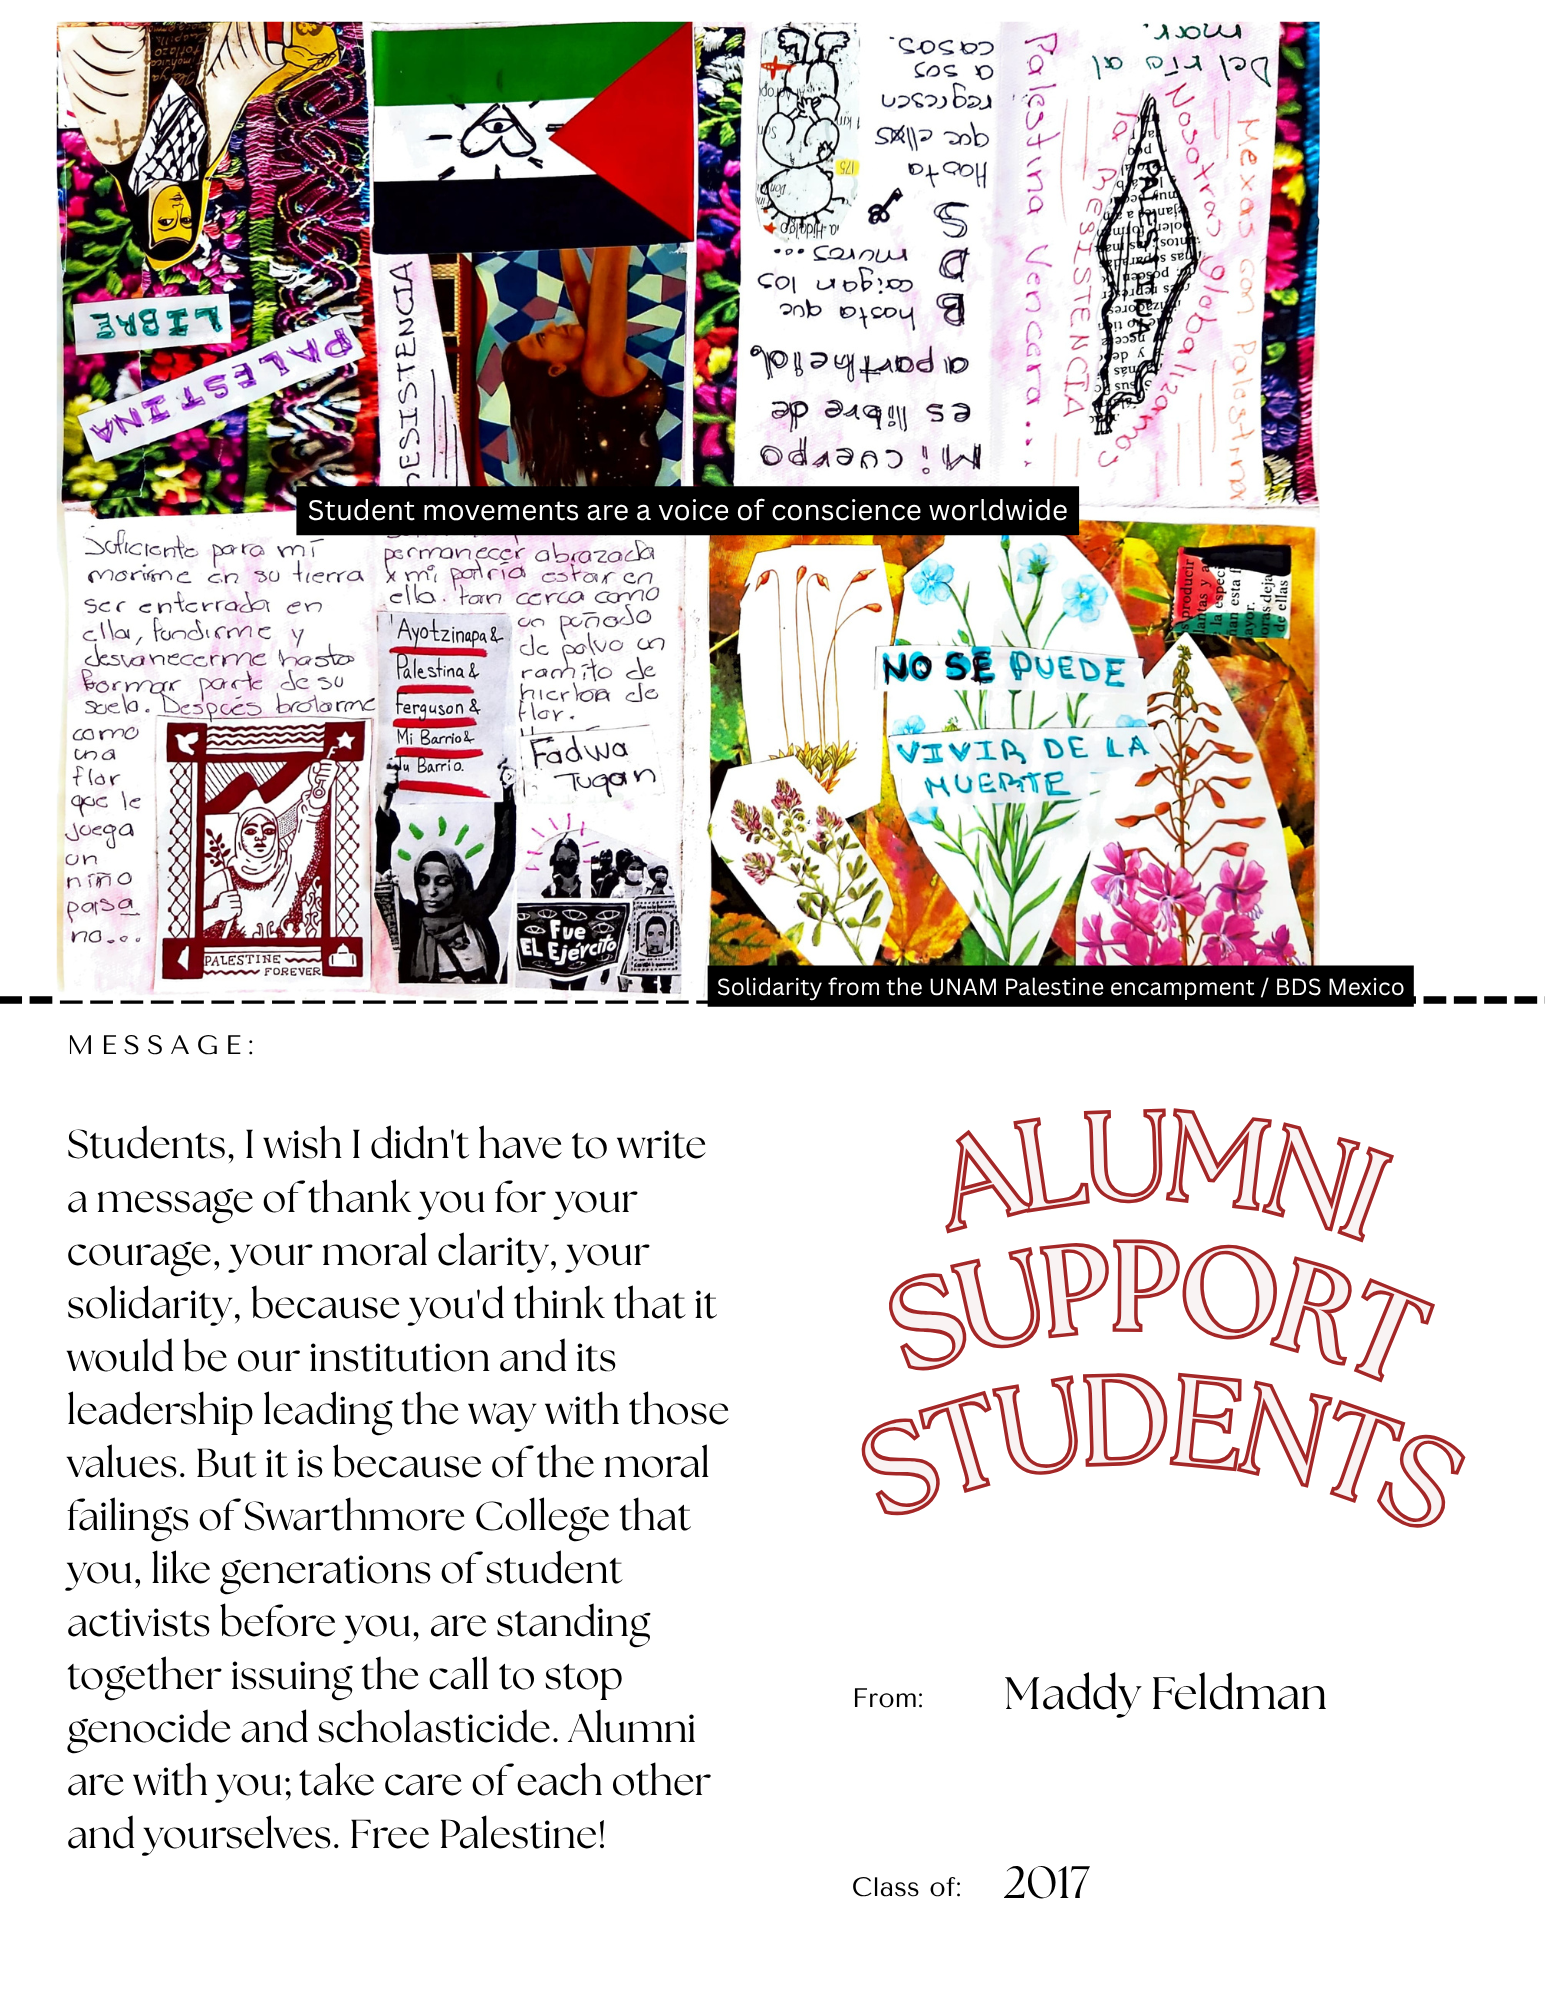 LIBRE
PALESTINA
DESISTENCIA
casas.
a sus
regresen
que ellxs
Hasta
muros...
caigan los
hasta que
BDS
apartheid
es libre de
Mi cuerpo
Palestina Vencera...
la RESISTENCIA
Nosotras globalizamos
PALESTINA
Mexas con Palestina
Del río al
mar.
Student movements are a voice of conscience worldwide
Suficiente para mí
morirme en su tierra
ser enterrada en
ella, fundirme y
desvanecerme hasta
formar parte de su
suelo. Después brotarme
como
una
flor
que le
juega
un
niño
paisa
no...
PALESTINE
FOREVER
permanecer abrazada
x mi patria estar en
ella. tan cerca como
un puñado
de polvo un
ramito de
hierba de
flor.
Ayotzinapa &
Palestina &
Ferguson &
Mi Barrio &
Tu Barrio.
Fadwa
Tuqan
Fue
EL Ejército
NO SE PUEDE
VIVIR DE LA
MUERTE
Solidarity from the UNAM Palestine encampment / BDS Mexico
MESSAGE:
Students, I wish I didn't have to write
a message of thank you for your
courage, your moral clarity, your
solidarity, because you'd think that it
would be our institution and its
leadership leading the way with those
values. But it is because of the moral
failings of Swarthmore College that
you, like generations of student
activists before you, are standing
together issuing the call to stop
genocide and scholasticide. Alumni
are with you; take care of each other
and yourselves. Free Palestine!
ALUMNI
SUPPORT
STUDENTS
From: Maddy Feldman
Class of: 2017